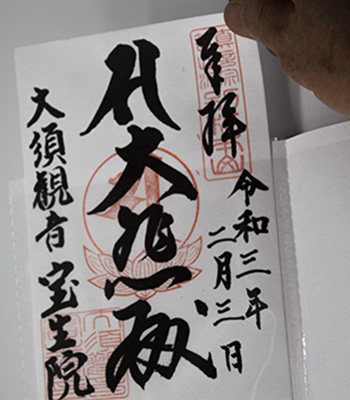 奉拝
令和三年
二月三日
大悲殿
大須観音 宝生院